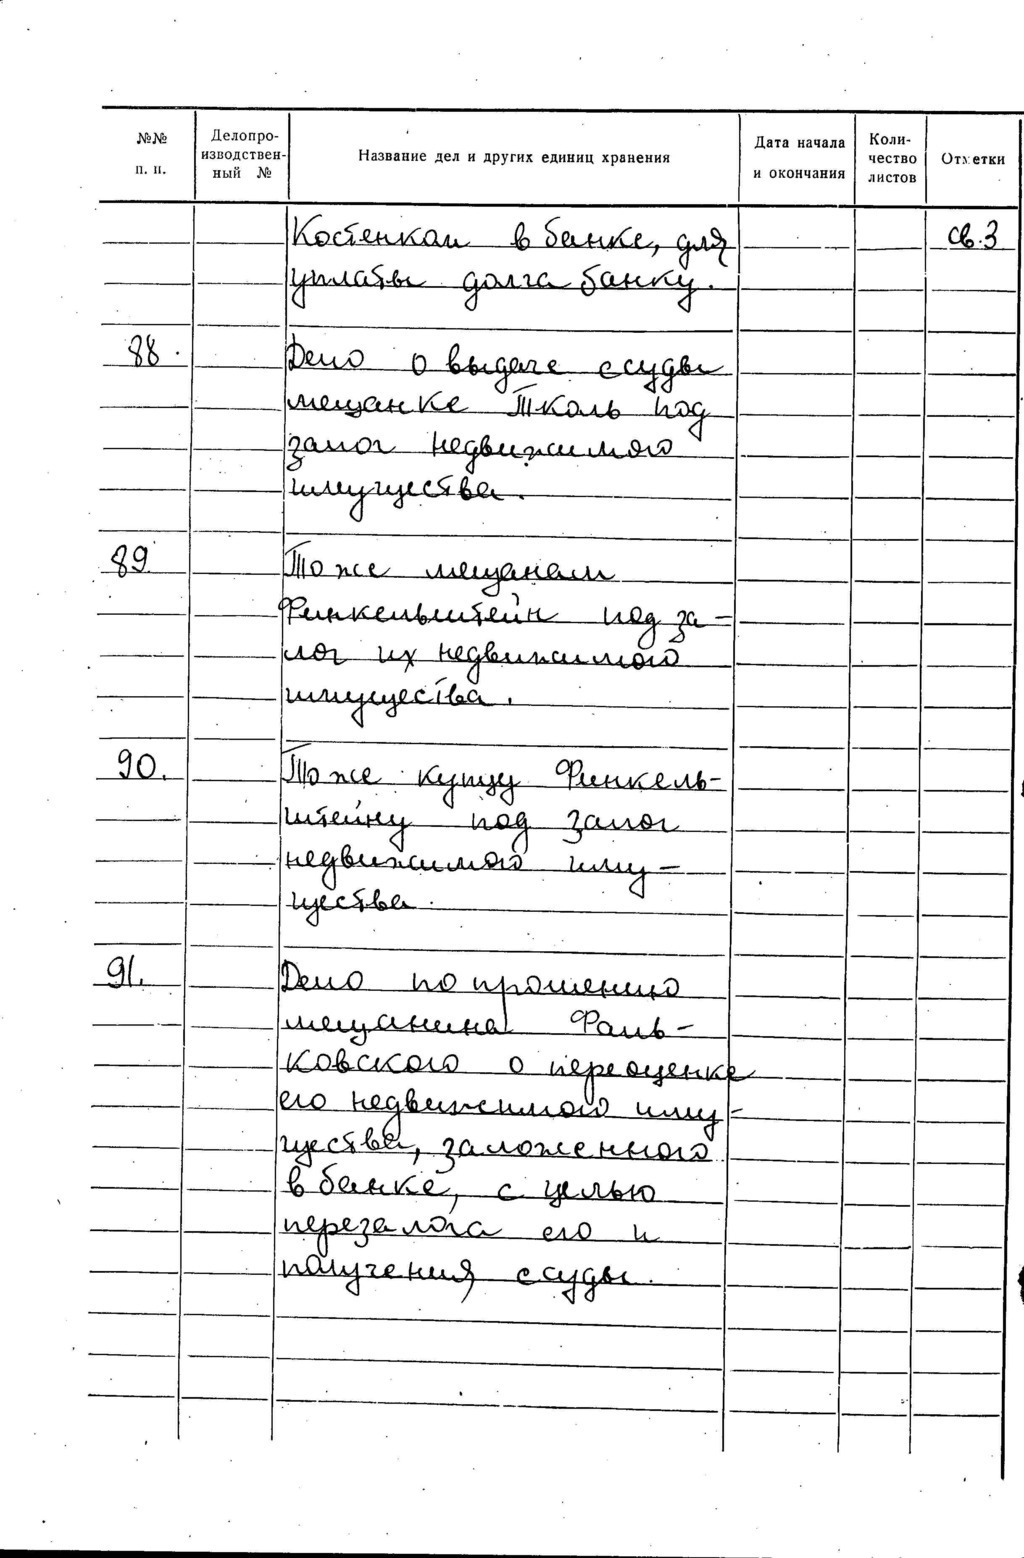 №№ п. п.
Делопро-
изводствен-
ный №
Название дел и других единиц хранения
Дата начала
и окончания
Коли-
чество
листов
Отметки
Костенкам в банке, для св.3
уплаты долга банку.
88. Дело о выдаче ссуды
мещанке Тколь под
залог недвижимого
имущества.
89. То же мещанам
Финкельштейн под за-
лог их недвижимого
имущества.
90. То же купцу Финкель-
штейну под залог
недвижимого иму-
щества.
91. Дело по прошению
мещанина Фаль-
ковского о переоценке
его недвижимого иму-
щества, заложенного
в банке, с целью
перезалога его и
получения ссуды.